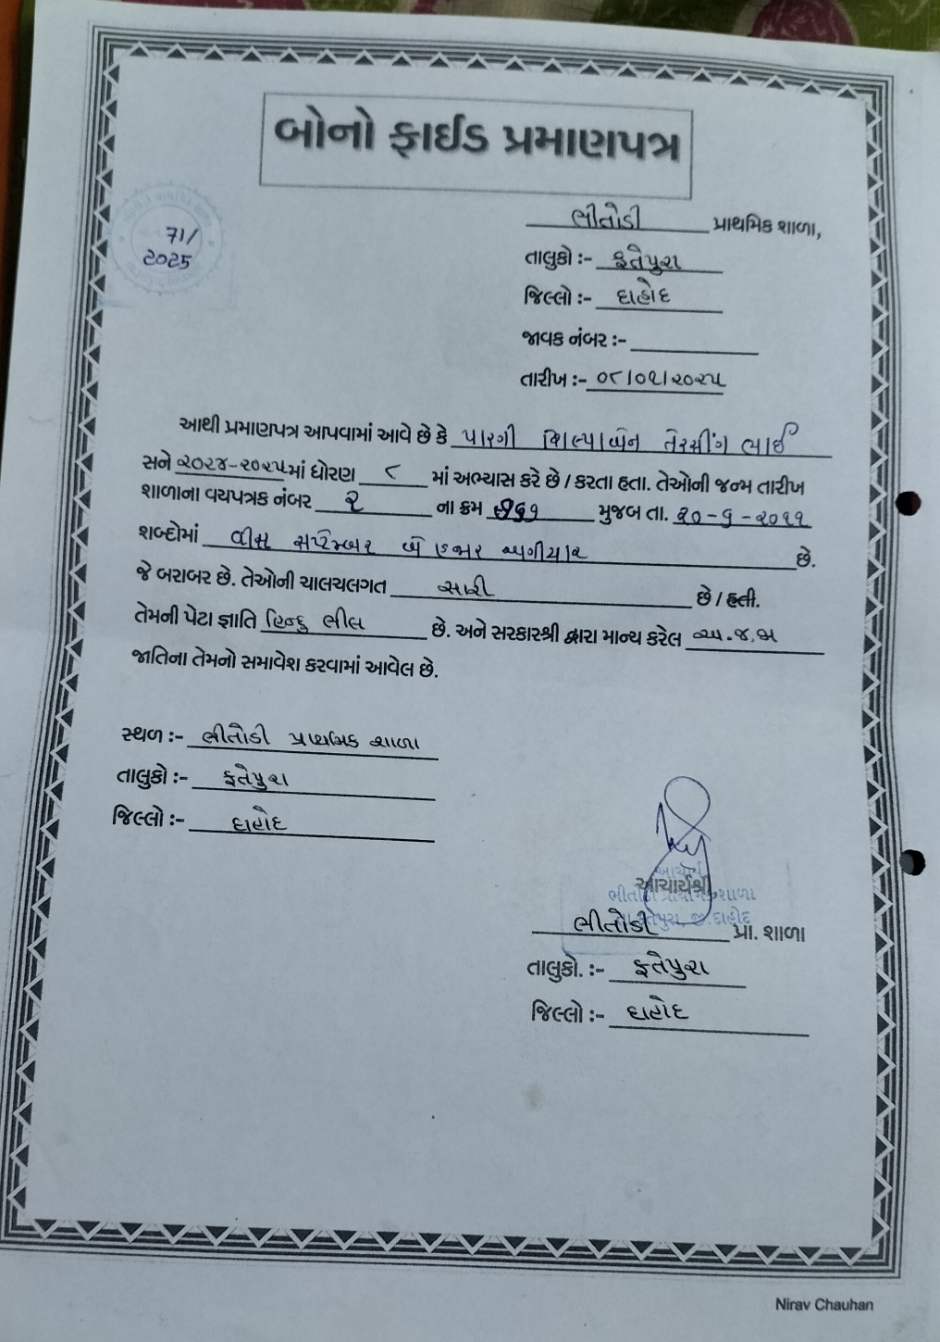 બોનો ફાઈડ પ્રમાણપત્ર
71/
2025
ભીતોડી પ્રાથમિક શાળા,
તાલુકો :- ફતેપુરા
જિલ્લો :- દાહોદ
જાવક નંબર :-
તારીખ :- ૦૮/૦૧/૨૦૨૫
આથી પ્રમાણપત્ર આપવામાં આવે છે કે પારગી શિલ્પાબેન તેરસીંગ ભાઈ
સને ૨૦૨૪-૨૦૨૫માં ધોરણ ૮ માં અભ્યાસ કરે છે / કરતા હતા. તેઓની જન્મ તારીખ
શાળાના વયપત્રક નંબર ૨ ના ક્રમ મુજબ તા. ૨૦-૯-૨૦૧૧
શબ્દોમાં વીસ સપ્ટેમ્બર બે હજાર અગીયાર છે.
જે બરાબર છે. તેઓની ચાલચલગત સારી છે / હતી.
તેમની પેટા જ્ઞાતિ હિન્દુ ભીલ છે. અને સરકારશ્રી દ્વારા માન્ય કરેલ અ.જ.જા
જાતિના તેમનો સમાવેશ કરવામાં આવેલ છે.
સ્થળ :- ભીતોડી પ્રાથમિક શાળા
તાલુકો :- ફતેપુરા
જિલ્લો :- દાહોદ
આચાર્યશ્રી
ભીતોડી પ્રા. શાળા
તાલુકો. :- ફતેપુરા
જિલ્લો :- દાહોદ
Nirav Chauhan